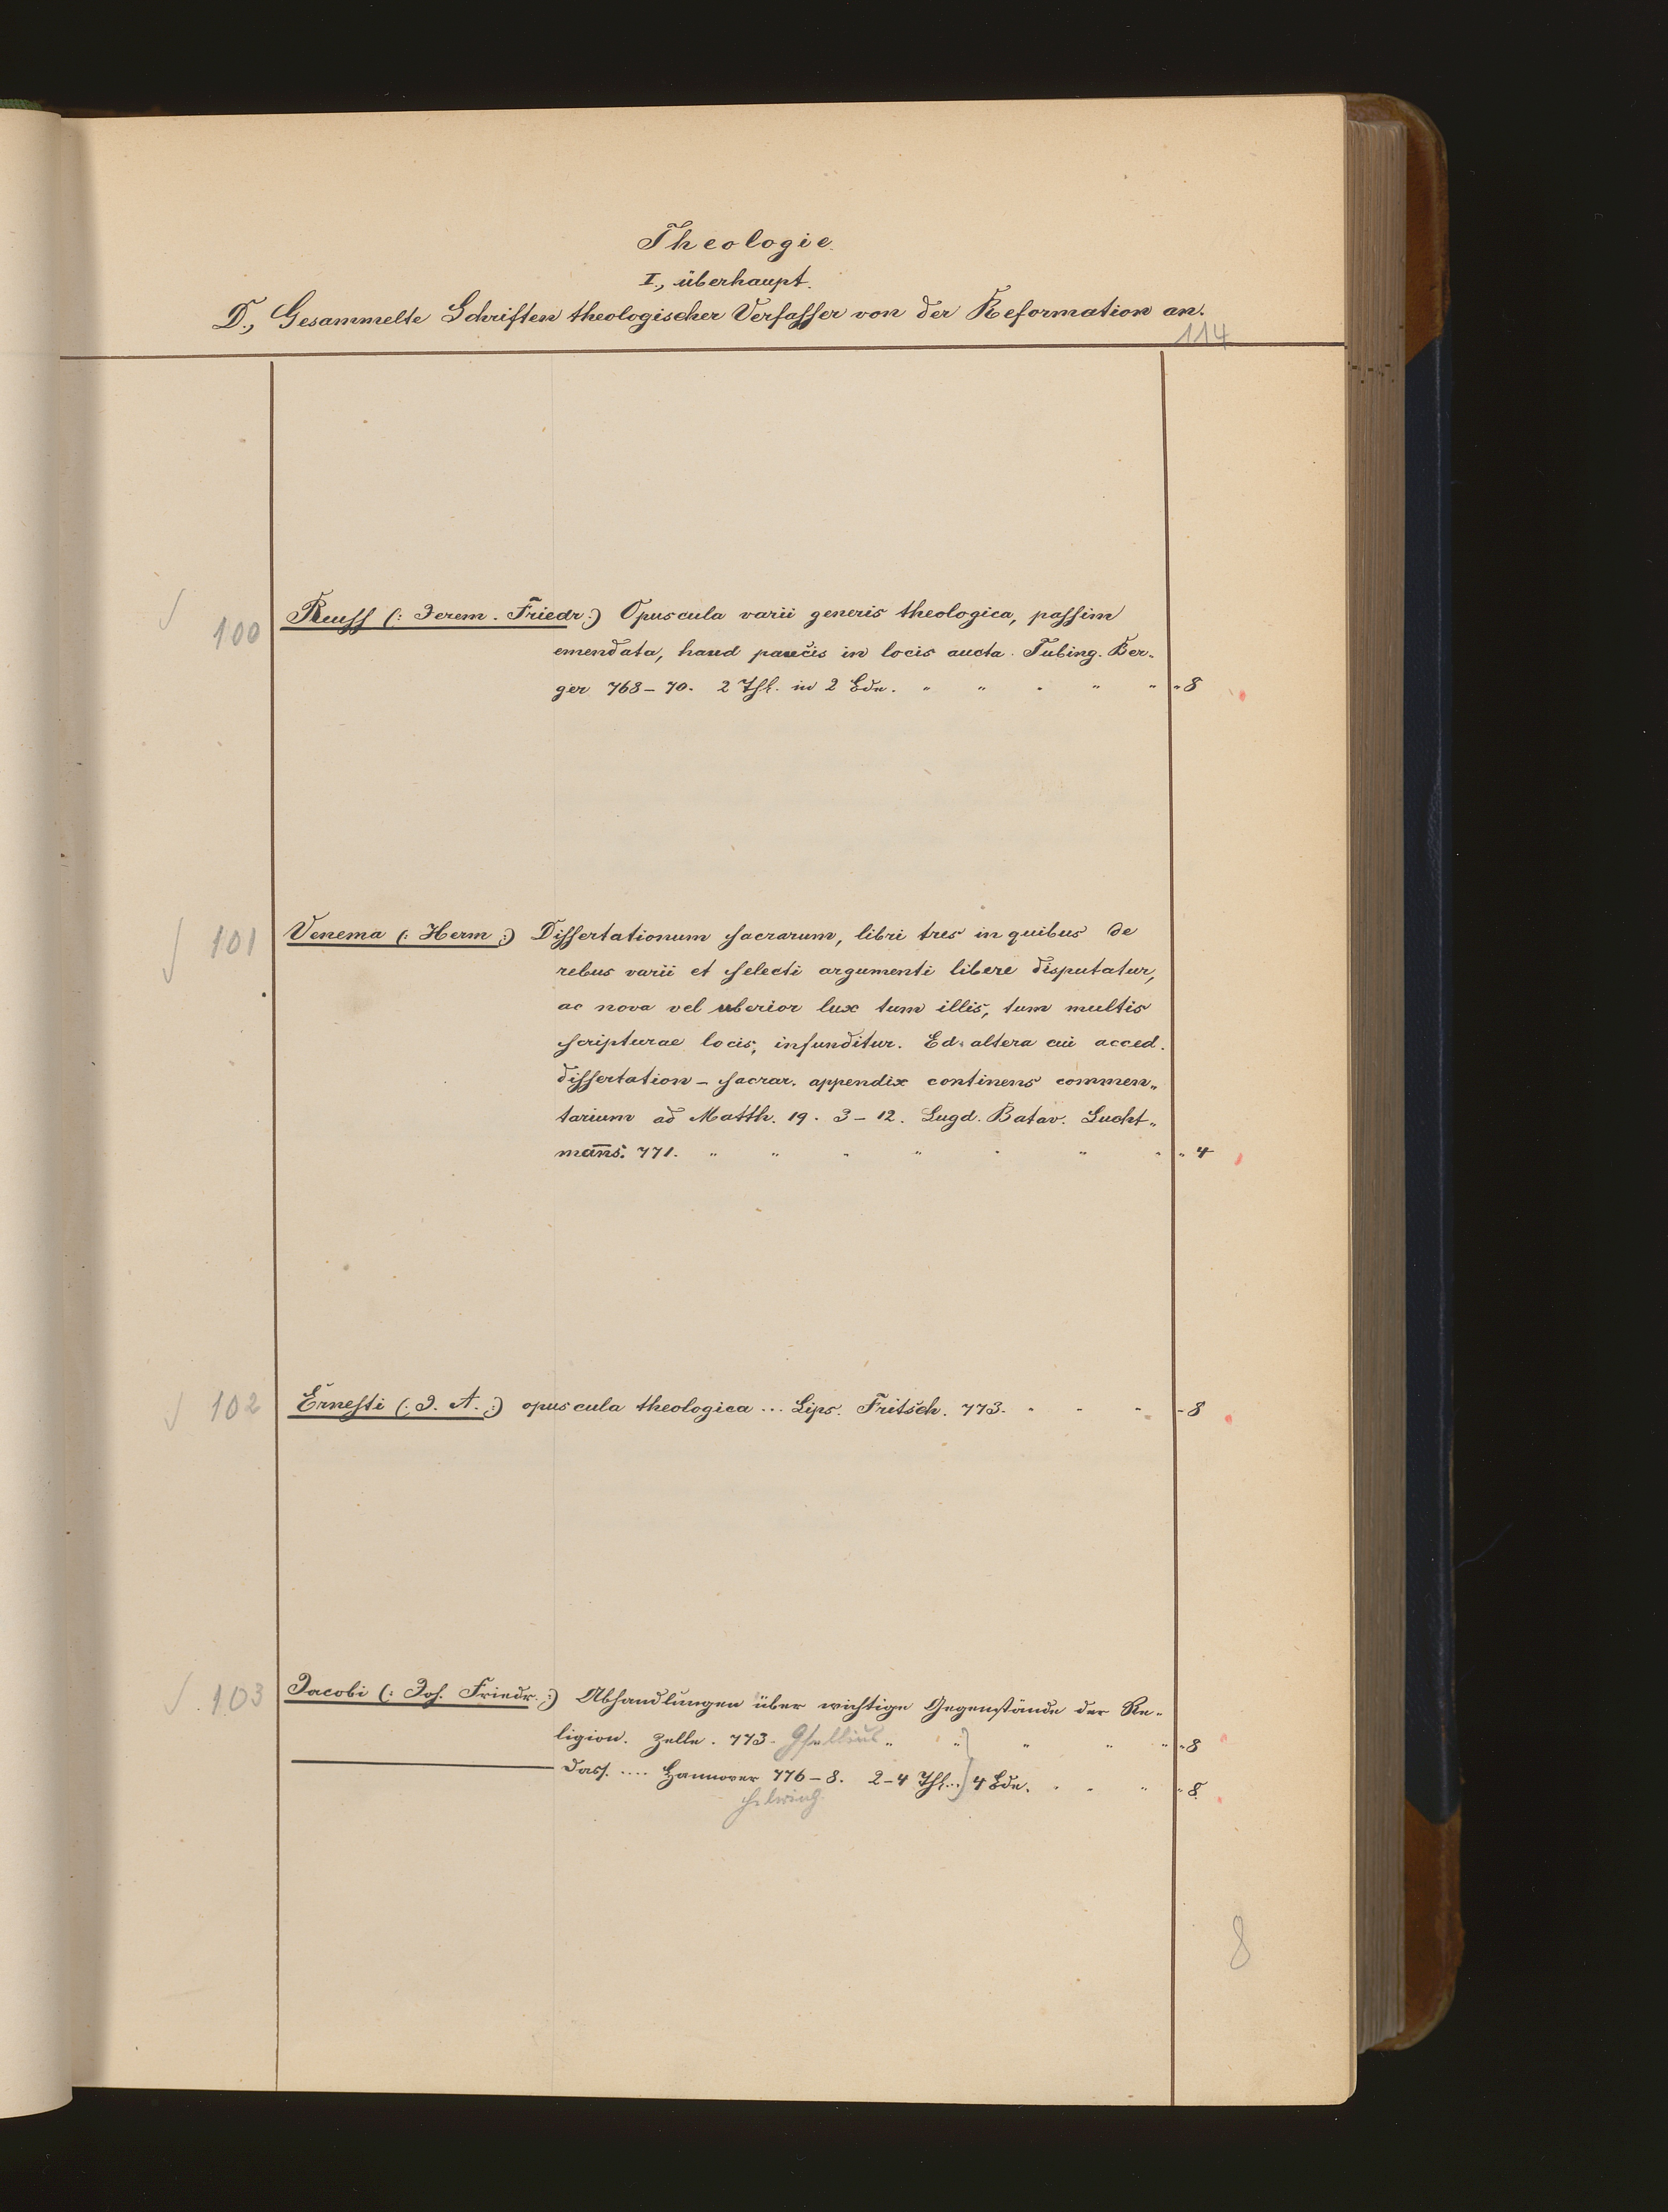 Theologie.
I., überhaupt.
D., Gesammelte Schriften theologischer Verfasser von der Reformation an.
114
100 Reuss (: Jerem. Friedr :) Opuscula varii generis theologica, passim
emendata, haud paucis in locis aucta. Tubing. Ber-
ger 768-70. 2 Thl. in 2 Bdn. " " " " " " 8
101 Venema (: Herm :) Dissertationum sacrarum, libri tres in quibus de
rebus varii et selecti argumenti libere disputatur,
ac nova vel uberior lux tum illis, tum multis
scripturae locis, infunditur. Ed. altera cui acced.
dissertation - sacrar. appendix continens commen„
tarium ad Matth. 19. 3-12. Lugd. Batav. Lucht„
man̄s. 771. " " " " " " " " 4
102 Ernesti (: J. A. :) opuscula theologica ... Lips. Fritsch. 773. " " " - 8
103 Jacobi (: Joh. Friedr. :) Abhandlungen über wichtige Gegenstände der Re-
ligion. Zelle. 773. Gsellius " " " " " " 8
dass. .... Hannover 776-8. 2-4 Thl...} 4 Bdn. " " " " 8
Helwing.
8